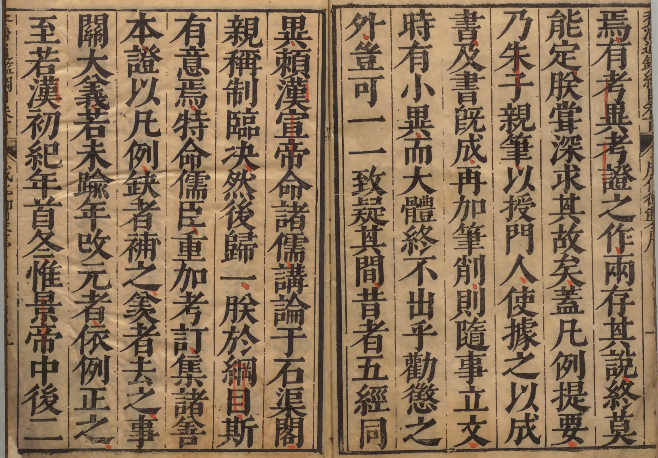 焉有考異考證之作兩存其說終莫
能定朕甞深求其故矣蓋凡例提要
乃朱子親筆以授門人使據之以成
書及書旣成再加筆削則隨事立文
時有小異而大體終不出乎勸懲之
外豈可一一致疑其間昔者五經同
異賴漢宣帝命諸儒講論于石渠閣
親稱制臨决然後歸一朕於綱目斯
有意焉特命儒臣重加考訂集諸舍
本證以凡例缺者補之羨者去之事
關大義若未踰年改元者依例正之
至若漢初紀年首冬惟景帝中後二